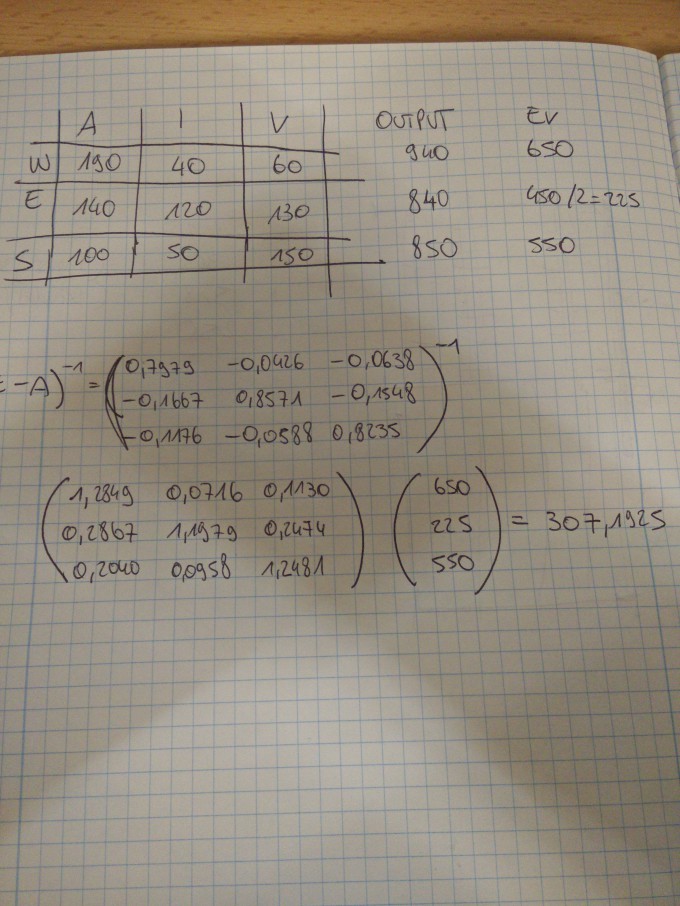 A I V OUTPUT EV
W 190 40 60 940 650
E 140 120 130 840 450/2=225
S 100 50 150 850 550
-A)⁻¹ = (0,7979 -0,0426 -0,0638)⁻¹
-0,1667 0,8571 -0,1548
-0,1176 -0,0588 0,8235
(1,2849 0,0716 0,1130) (650)
0,2867 1,1979 0,2474 225 = 307,1925
0,2040 0,0958 1,2481 550